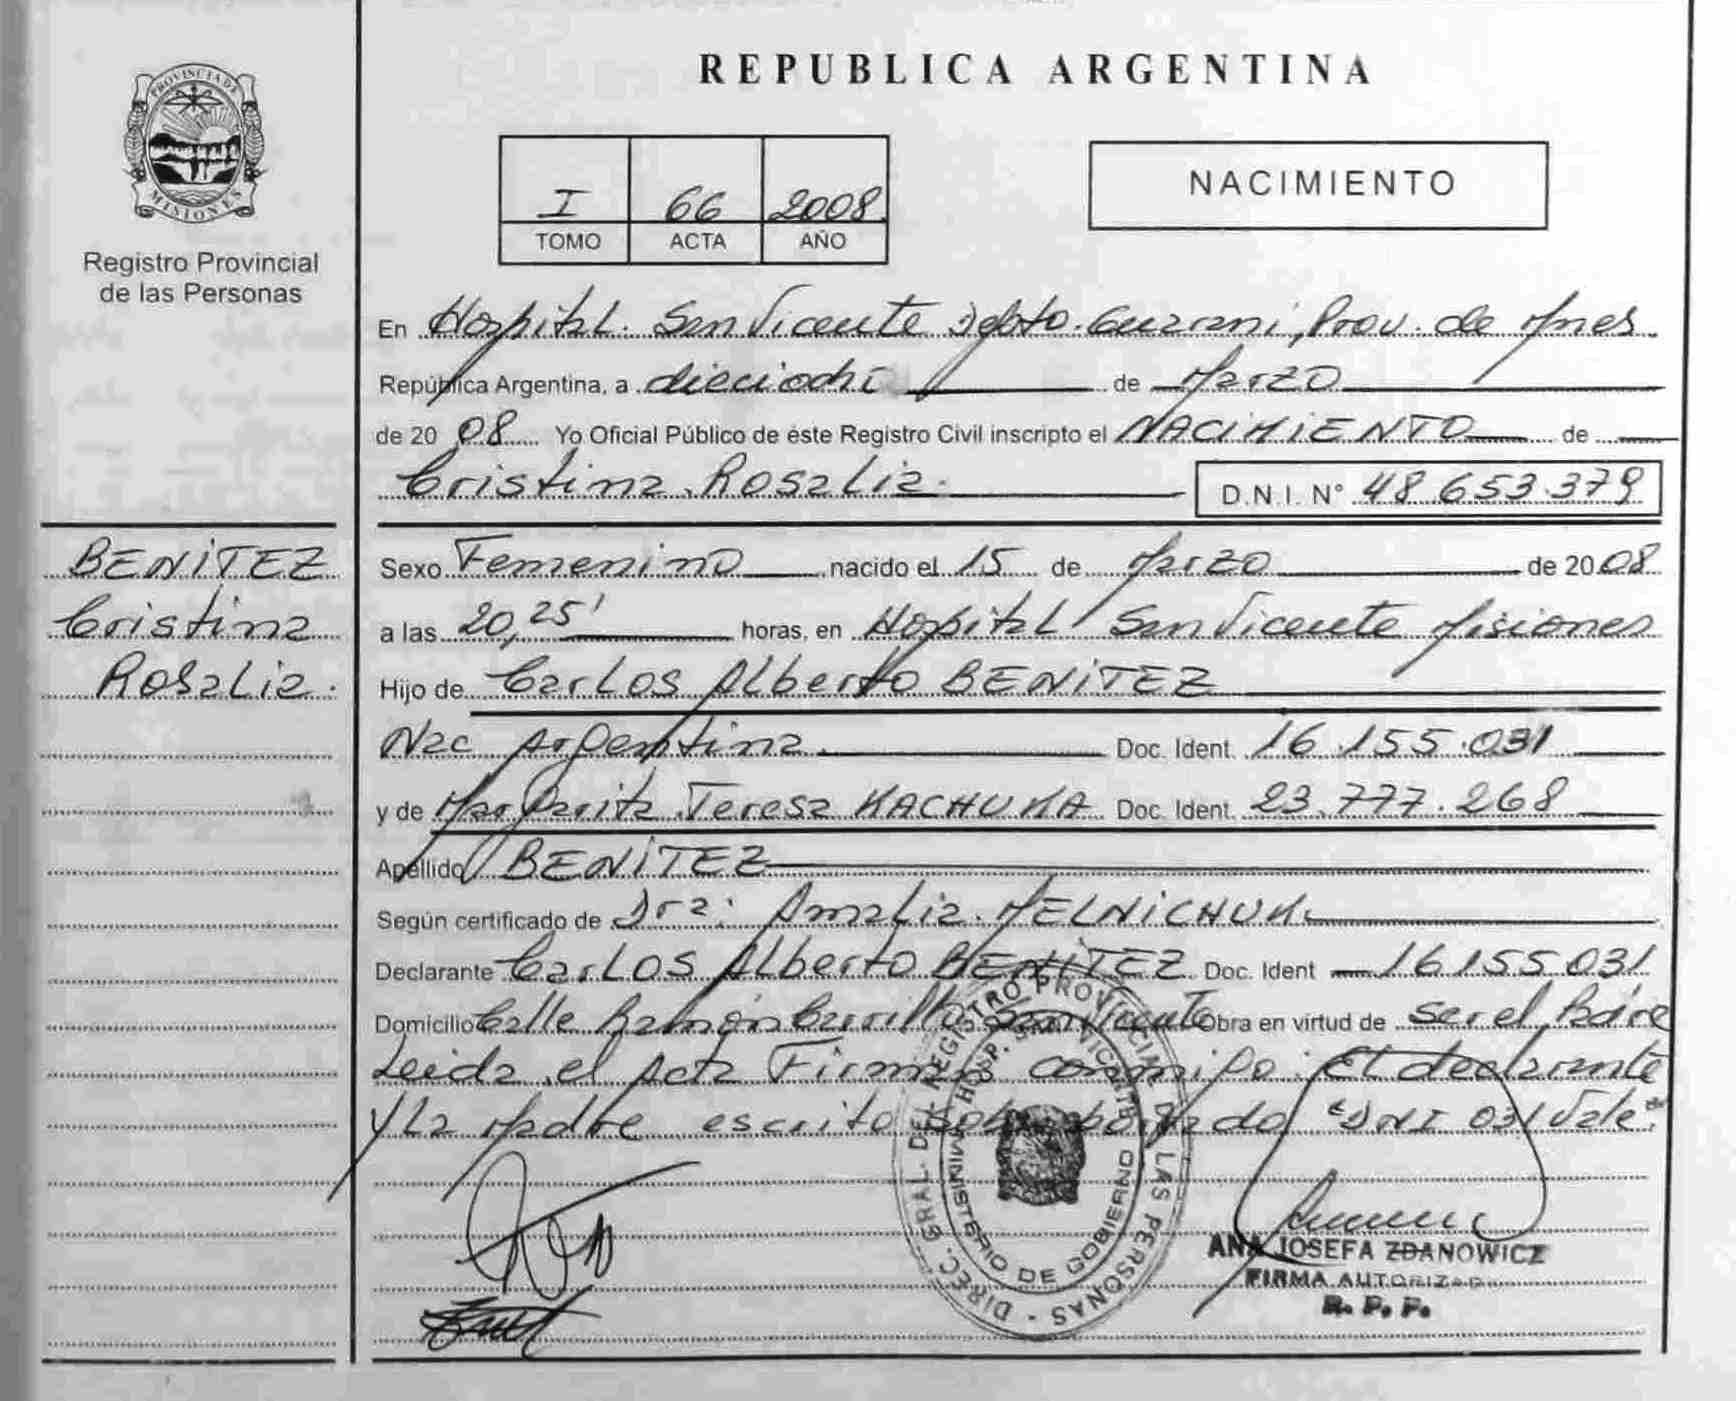 PROVINCIA DE
MISIONES
Registro Provincial
de las Personas
BENITEZ
Cristina
Rosalia.
REPUBLICA ARGENTINA
I 66 2008
TOMO ACTA AÑO
NACIMIENTO
En Hospital. San Vicente Dpto. Guarani, Prov. de Mnes
República Argentina, a dieciocho de Marzo
de 2008 Yo Oficial Público de éste Registro Civil inscripto el NACIMIENTO de
Cristina Rosalia. D.N.I. N° 48 653.379
Sexo Femenino nacido el 15 de Marzo de 2008
a las 20,25' horas, en Hospital San Vicente Misiones
Hijo de Carlos Alberto BENITEZ
Nac Argentina Doc. Ident. 16.155.031
y de Margarita Teresa KACHUKA Doc. Ident. 23.777.268
Apellido BENITEZ
Según certificado de Dra: Amalia MELNICHUK
Declarante Carlos Alberto BENITEZ Doc. Ident 16155031
Domicilio Calle Ramón Carrillo San Vicente Obra en virtud de ser el Padre
Leida el acta Firman conmigo: El declarante
y La Madre escrito sobre borrado "DNI 031 Vale".
DIREC. GRAL. DEL REGISTRO PROVINCIAL DE LAS PERSONAS
MINISTERIO DE GOBIERNO
HOSP. SAN VICENTE
ANA JOSEFA ZDANOWICZ
FIRMA AUTORIZADA
R. P. P.